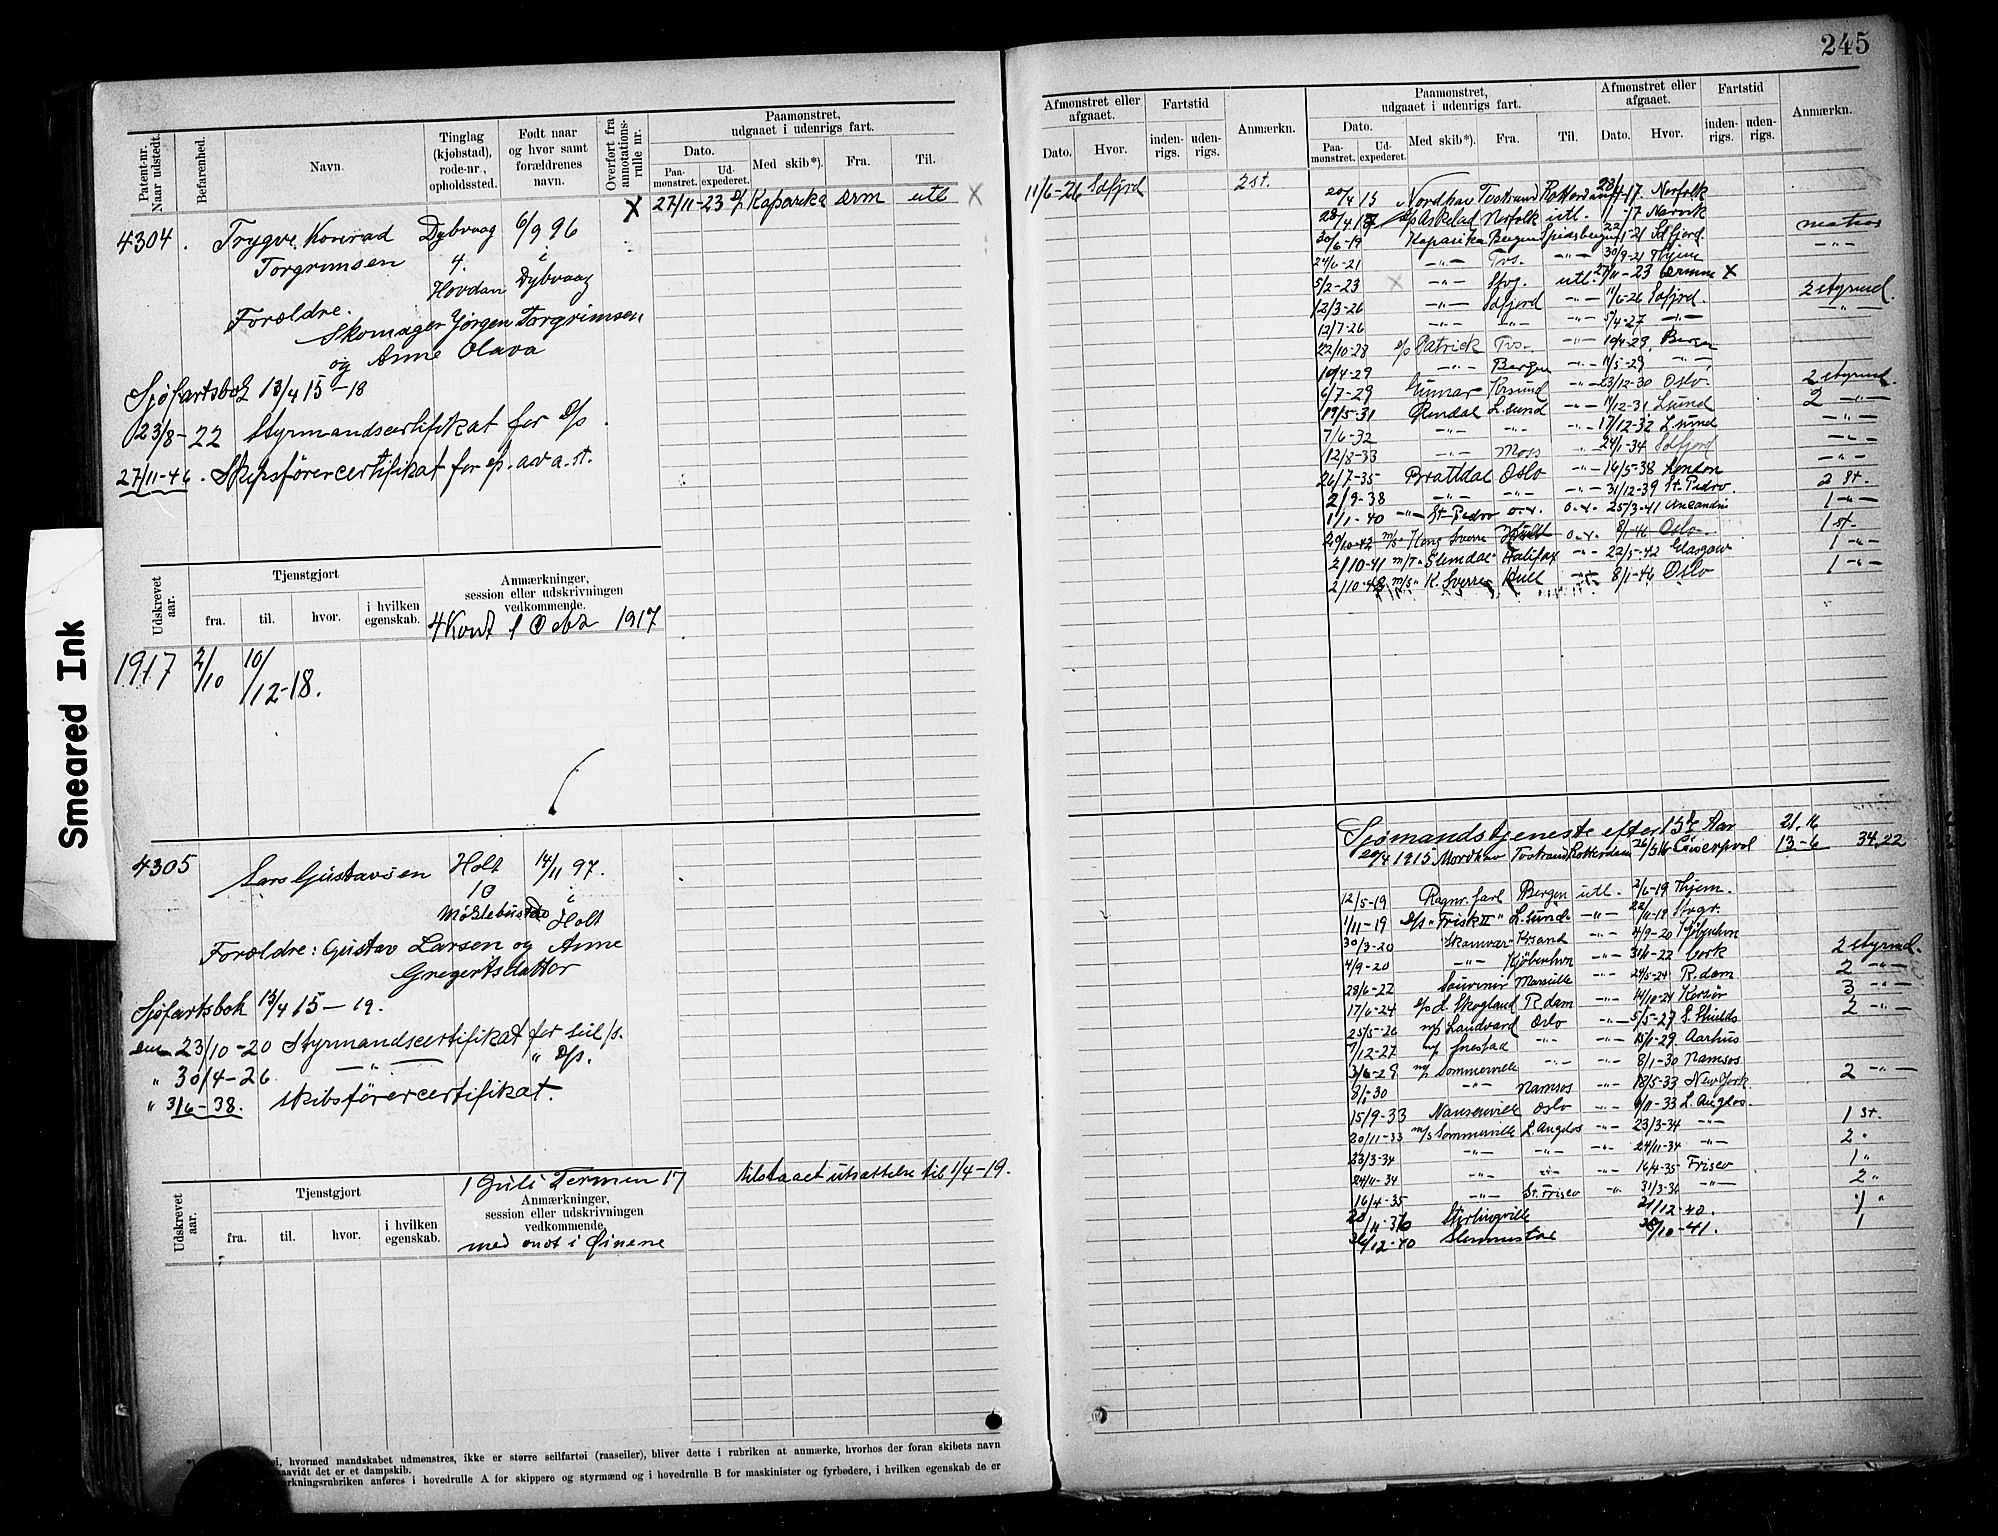 245
Smeared Ink
Patent-nr. Naar udstedt.
Befarenhed.
Navn.
Tinglag (kjøbstad), rode-nr., opholdssted.
Født naar og hvor samt forældrenes navn.
Overført fra annotations-rulle nr.
Paamønstret, udgaaet i udenrigs fart.
Dato.
Paa-mønstret.
Ud-expederet.
Med skib*).
Fra.
Til.
4304. Trygve Konrad Dybvaag 6/9 96 X 27/11-23 Kaparika utl
Torgrimsen 4. i
Hovdan Dybvaag
Forældre.
Skomager Jørgen Torgrimsen
og Anne Olava
Sjøfartsbok 13/4 15-18
23/8-22 Styrmandscertifikat for D/s
27/11-46. Skipsförercertifikat for
Udskrevet aar.
Tjenstgjort
fra. til. hvor. i hvilken egenskab.
Anmærkninger, session eller udskrivningen vedkommende.
1917
1917 2/10 10/12-18.
4305 Lars Gustavsen Holt 14/11 97.
10 i
Holt
Forældre: Gustav Larsen og Anne
Gregertsdatter
Sjøfartsbok 13/4 15-19.
23/10-20 Styrmandscertifikat for seil/s.
" 30/4-26 -"- " D/s.
" 3/6-38. skibsförercertifikat.
1 Juli Termen 17 tilstaaet utsættelse til 1/4-19.
Udskrevet aar.
Tjenstgjort
fra. til. hvor. i hvilken egenskab.
Anmærkninger,
session eller udskrivningen
vedkommende.
med
hvormed mandskabet udmønstres, ikke er større seilfartøi (raaseiler), bliver dette i rubriken at anmærke, hvorhos der foran skibets navn
det er et dampskib.
anføres i hovedrulle A for skippere og styrmænd og i hovedrulle B for maskinister og fyrbødere, i hvilken egenskab de er
Afmønstret eller afgaaet.
Dato. Hvor.
Fartstid
inden-rigs. uden-rigs.
Anmærkn.
Paamønstret, udgaaet i udenrigs fart.
Dato.
Paa-mønstret. Ud-expederet.
Med skib*). Fra. Til.
Afmønstret eller afgaaet.
Dato. Hvor.
Fartstid
inden-rigs. uden-rigs.
Anmærkn.
11/6-26 Sdfjord 2 st.
20/4 15 Nordhav Tvstrand Rotterdam Norfolk
Askelad Norfolk utl. Narvik matros
30/6-19 Kaparika Bergen Spidsbergen Sdfjord -"-
24/6-21 -"- Tvs. -"- 30/9-21 Thjem
5/2-23 -"- utl. 27/11-23 X
12/3-26 -"- Sdfjord -"- 11/6-26 Sdfjord. 2 styrmd.
12/7-26 -"- -"- -"- 5/4-27 -"- -"-
22/10-28 Patrick Tvs. -"- Bergen
10/4-29 -"- Bergen -"- 11/5-29 -"-
6/7-29 Gunnar Krsund -"- 23/12-30 Oslo. 2 styrmd.
19/5-31 L.sund -"- 11/12-31 L.sund 2 -"-
7/6-32 -"- -"- -"- 17/12-32 L.sund -"-
12/8-33 -"- Moss -"- 24/1-34 Sdfjord -"-
26/7-35 Brattdal Oslo -"- 14/5-38 London -"-
2/9-38 -"- -"- -"- 31/12-39 St. Pedro. 2 St.
1/1-40 -"- St. Pedro o.v. o.v. 25/3-41 1 -"-
20/10-42 m/s Kong Sverre Hull o.v. 8/1-46 Oslo 1 st.
2/10-41 m/T Glimdal Halifax -"- 22/5-42 Glasgow 1 -"-
2/10-42 m/s K. Sverre Hull -"- 8/1-46 Oslo 1 -"-
Sjømandstjeneste efter 15de Aar 21.16
20/4 1915 Nordhav Tvstrand Rotterdam Liverpool 13-6 34.22
12/5-19 Ragnv. Jarl Bergen utl. 2/6-19 Thjem.
1/11-19 D/s "Frisk II" L.sund -"- 22/11-19
30/3-20 Krsand -"- 4/9-20 Kjøbenhvn
4/9-20 -"- Kjøbenhvn -"- Cork 2 styrmd.
28/6-22 Souvenir Marseille -"- 24/5-24 R.dam 2 -"-
17/6-24 D/s L. Skogland R.dam -"- 14/10-24 Korsør 3 -"-
25/5-26 m/s Landvard Oslo -"- 5/5-27 S. Shields 2 -"-
7/12-27 m/s Jnestad -"- -"- Aarhus
3/6-29 m/s Sommerville -"- -"- 8/1-30 Namsos
8/1-30 -"- Namsos -"- 18/5-33 New York. 2 -"-
15/9-33 Nansenville Oslo -"- L. Anglos.
20/11-33 m/s Sommerville L. Anglos -"- 23/3-34 -"- 1 st.
23/3-34 -"- -"- -"- 24/11-34 -"- 2 "
24/11-34 -"- -"- -"- 16/4-35 Frisco 1 "
16/4-35 -"- St. Frisco -"- 31/3-36 -"- 2 "
Stirlingville 21/12-40. 1 "
Slemmestad 1